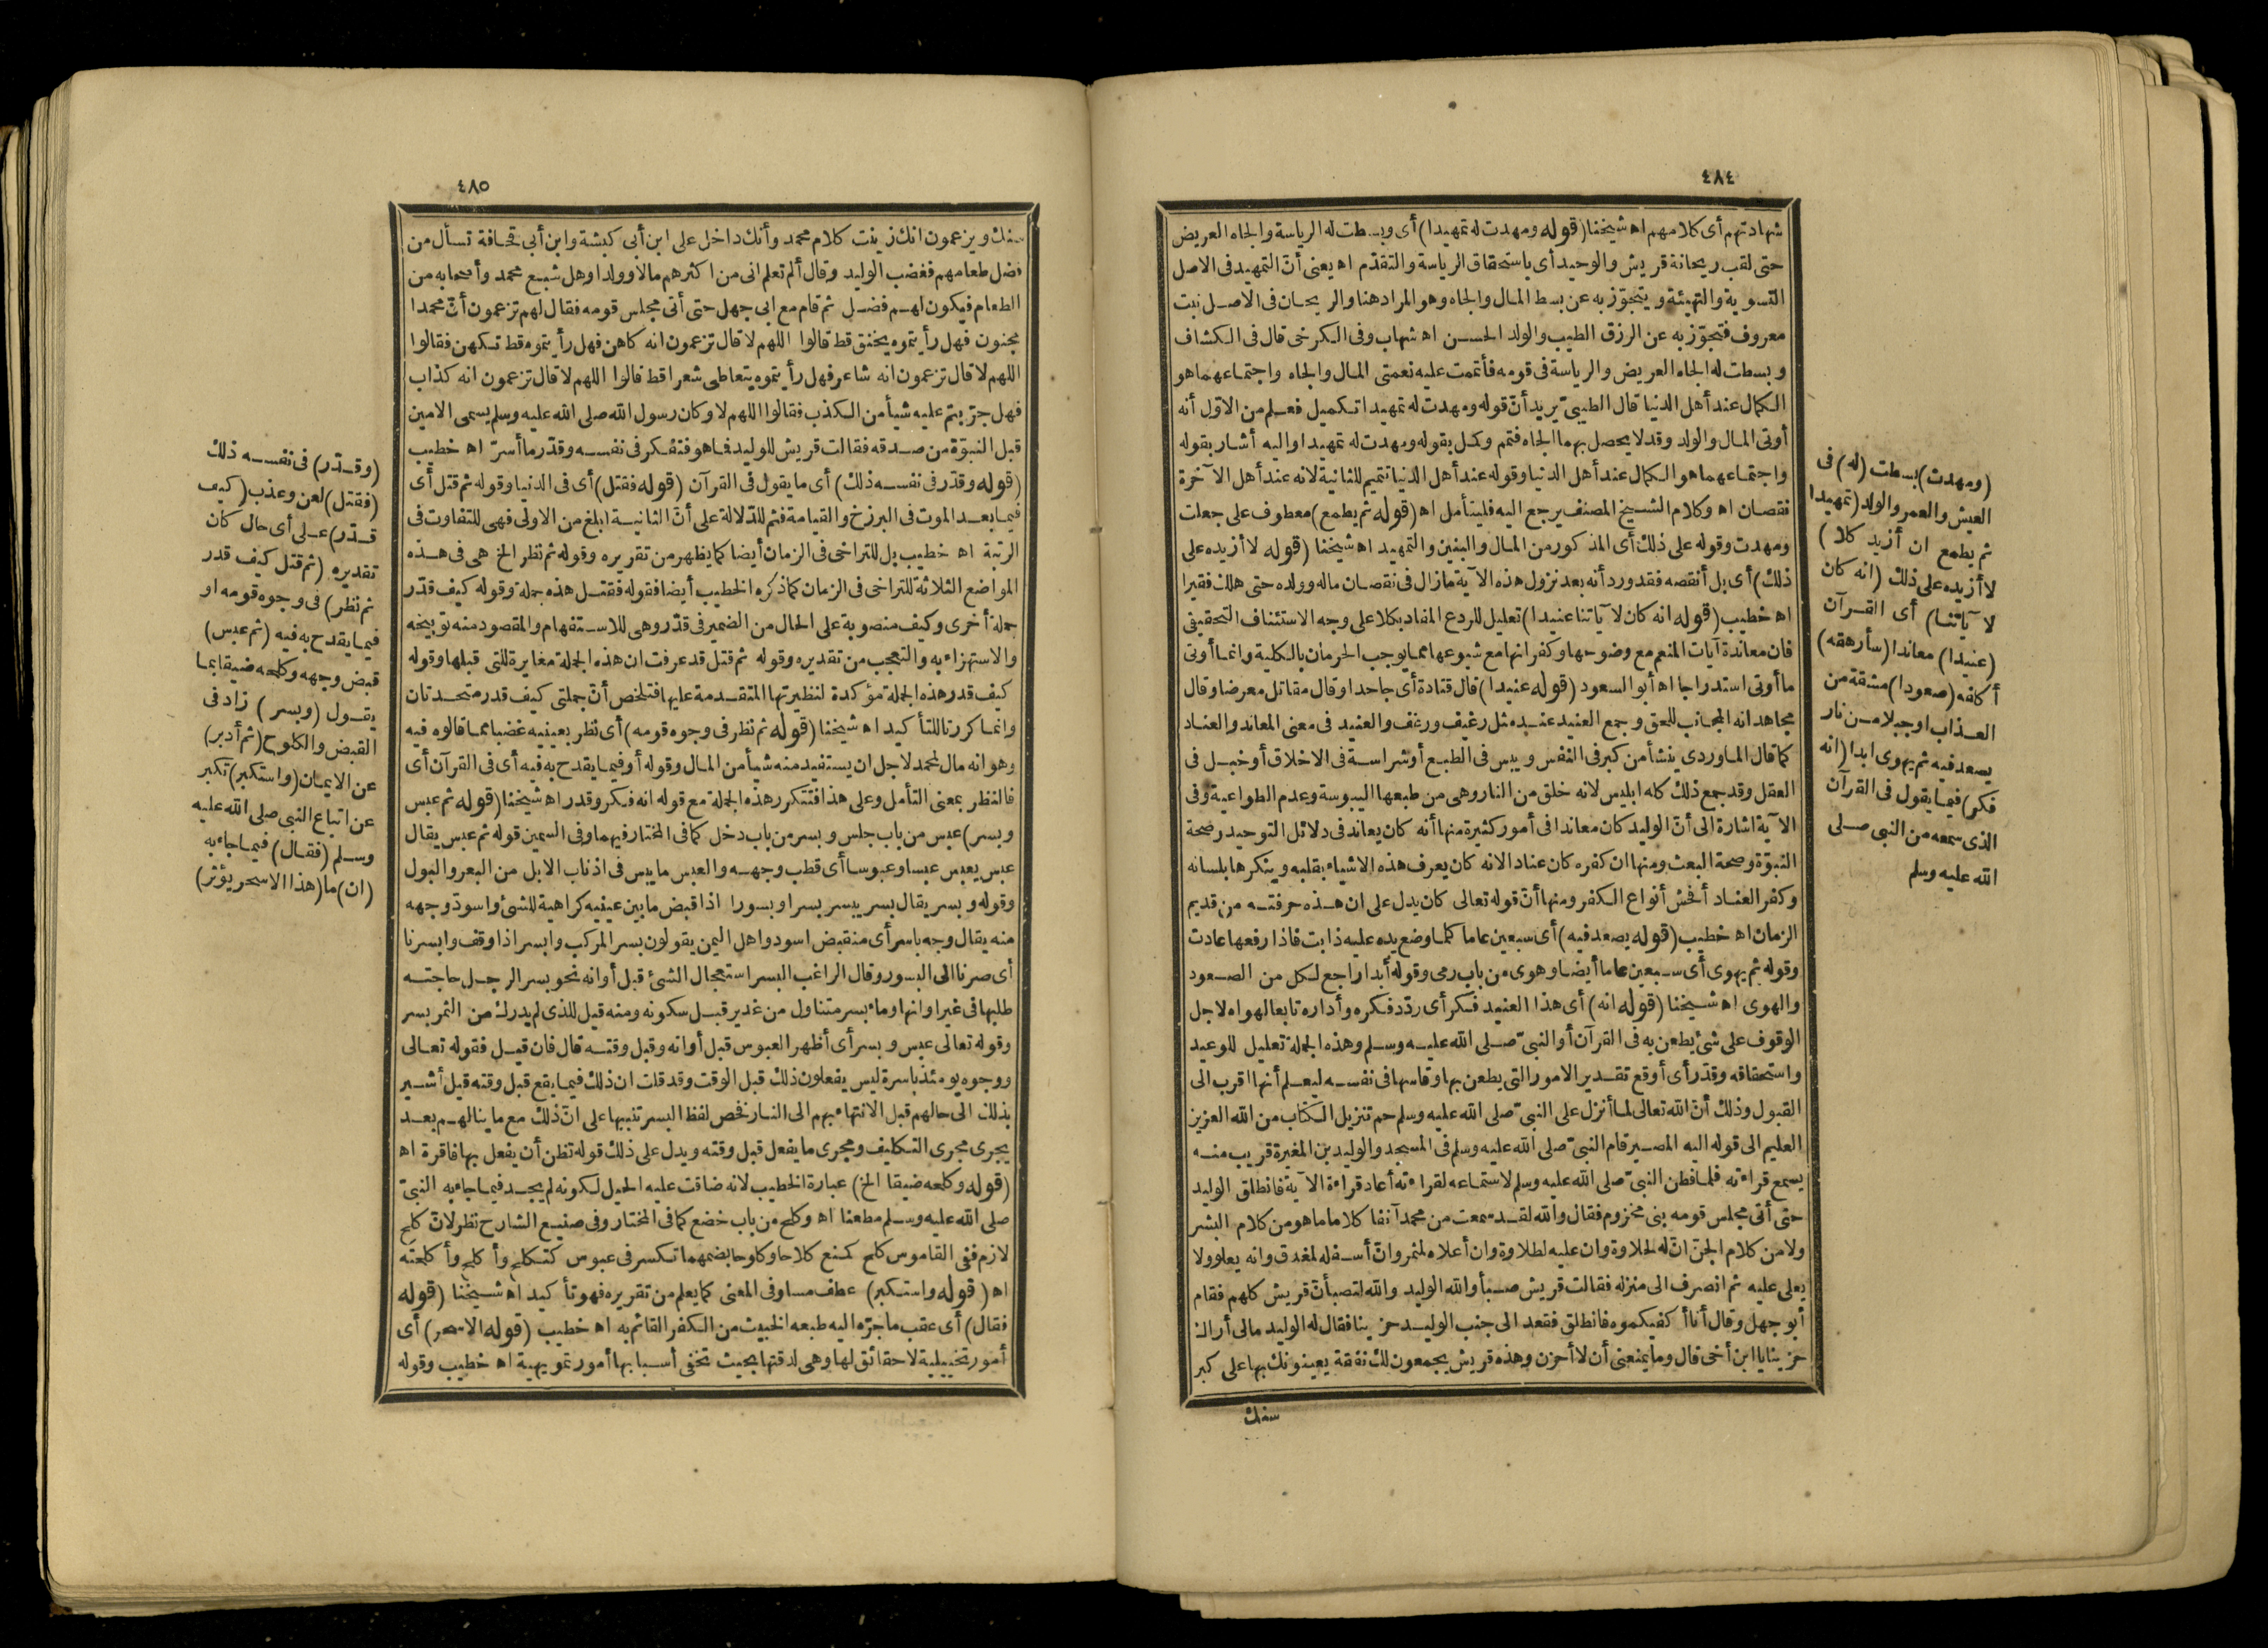 ٤٨٤
شهادتهم أى كلامهم اه شيخنا (قوله ومهدت له تمهيدا) أى وبسطت له الرياسة والجاه العريض
حتى لقب ريحانة قريش والوحيد أى باستحقاق الرياسة والتقدّم اه يعنى أنّ التمهيد فى الاصل
التسوية والتهيئة ويتجوّز به عن بسط المال والجاه وهو المراد هنا والريحان فى الاصل نبت
معروف فتجوّز به عن الرزق الطيب والولد الحسن اه شهاب وفى الكرخى قال فى الكشاف
وبسطت له الجاه العريض والرياسة فى قومه فأتممت عليه نعمتى المال والجاه واجتماعهما هو
الكمال عند أهل الدنيا قال الطيبىّ يريد أنّ قوله ومهدت له تمهيدا تكميل فعلم من الاوّل أنه
أوتى المال والولد وقد لا يحصل بهما الجاه فتمم وكمل بقوله ومهدت له تمهيدا واليه أشار بقوله
واجتماعهما هو الكمال عند أهل الدنيا وقوله عند أهل الدنيا تتميم للثانية لانه عند أهل الآخرة
نقصان اه وكلام الشيخ المصنف يرجع اليه فليتأمل اه (قوله ثم يطمع) معطوف على جعلت
ومهدت وقوله على ذلك أى المذكور من المال والبنين والتمهيد اه شيخنا (قوله لا أزيده على
ذلك) أى بل أنقصه فقد ورد أنه بعد نزول هذه الآية مازال فى نقصان ماله وولده حتى هلك فقيرا
اه خطيب (قوله انه كان لآياتنا عنيدا) تعليل للردع المفاد بكلا على وجه الاستئناف التحقيقى
فان معاندة آيات المنعم مع وضوحها وكفرانها مع شيوعها مما يوجب الحرمان بالكلية وانما أوتى
ما أوتى استدراجا اه أبو السعود (قوله عنيدا) قال قتادة أى جاحدا وقال مقاتل معرضا وقال
مجاهد انه المجانب للحق وجمع العنيد عند مثل رغيف ورغف والعنيد فى معنى المعاند والعناد
كما قال الماوردى ينشأ من كبر فى النفس ويبس فى الطبع أو شراسة فى الاخلاق أو خبل فى
العقل وقد جمع ذلك كله ابليس لانه خلق من النار وهى من طبعها اليبوسة وعدم الطواعية وفى
الآية اشارة الى أنّ الوليد كان معاندا فى أمور كثيرة منها أنه كان يعاند فى دلائل التوحيد وصحة
النبوّة وصحة البعث ومنها ان كفره كان عنادا لانه كان يعرف هذه الاشياء بقلبه وينكرها بلسانه
وكفر العناد أفحش أنواع الكفر ومنها أنّ قوله تعالى كان يدل على ان هذه حرفته من قديم
الزمان اه خطيب (قوله يصعد فيه) أى سبعين عاما كلما وضع يده عليه ذابت فاذا رفعها عادت
وقوله ثم يهوى أى سبعين عاما أيضا وهوى من باب رمى وقوله أبدا راجع لكل من الصعود
والهوى اه شيخنا (قوله انه) أى هذا العنيد فكر أى ردّد فكره وأداره تابعا لهواه لاجل
الوقوف على شئ يطعن به فى القرآن أو النبىّ صلى الله عليه وسلم وهذه الجملة تعليل للوعيد
واستحقاقه وقدّر أى أوقع تقدير الامور التى يطعن بها وقاسها فى نفسه ليعلم أنها اقرب الى
القبول وذلك أنّ الله تعالى لما أنزل على النبىّ صلى الله عليه وسلم حم تنزيل الكتاب من الله العزيز
العليم الى قوله اليه المصير قام النبىّ صلى الله عليه وسلم فى المسجد والوليد بن المغيرة قريب منه
يسمع قراءته فلما فطن النبىّ صلى الله عليه وسلم لاستماعه لقراءته أعاد قراءة الآية فانطلق الوليد
حتى أتى مجلس قومه بنى مخزوم فقال والله لقد سمعت من محمد آنفا كلاما ما هو من كلام البشر
ولا من كلام الجن انّ له لحلاوة وان عليه لطلاوة وان أعلاه لمثمر وانّ أسفله لمغدق وانه يعلو ولا
يعلى عليه ثم انصرف الى منزله فقالت قريش صبأ والله الوليد والله لتصبأنّ قريش كلهم فقام
أبو جهل وقال أنا أكفيكموه فانطلق فقعد الى جنب الوليد حزينا فقال له الوليد مالى أراك
حزينا يا ابن أخى قال وما يمنعنى أن لا أحزن وهذه قريش يجمعون لك نفقة يعينونك بها على كبر
سنك
(ومهدت) بسطت (له) فى
العيش والعمر والولد (تمهيدا
ثم يطمع ان أزيد كلا)
لا أزيده على ذلك (انه كان
لآياتنا) أى القرآن
(عنيدا) معاندا (سأرهقه)
أكلفه (صعودا) مشقة من
العذاب او جبلا من نار
يصعد فيه ثم يهوى ابدا (انه
فكر) فيما يقول فى القرآن
الذى سمعه من النبى صلى
الله عليه وسلم
٤٨٥
سنك ويزعمون انك زينت كلام محمد وأنك داخل على ابن أبى كبشة وابن أبى قحافة تسأل من
فضل طعامهم فغضب الوليد وقال ألم تعلم انى من اكثرهم مالا وولدا وهل شبع محمد وأصحابه من
الطعام فيكون لهم فضل ثم قام مع ابى جهل حتى أتى مجلس قومه فقال لهم تزعمون أنّ محمدا
مجنون فهل رأيتموه يخنق قط قالوا اللهم لا قال تزعمون انه كاهن فهل رأيتموه قط تكهن فقالوا
اللهم لا قال تزعمون انه شاعر فهل رأيتموه يتعاطى شعرا قط قالوا اللهم لا قال تزعمون انه كذاب
فهل جرّبتم عليه شيأ من الكذب فقالوا اللهم لا وكان رسول الله صلى الله عليه وسلم يسمى الامين
قبل النبوّة من صدقه فقالت قريش للوليد فما هو فتفكر فى نفسه وقدّر ما أسرّ اه خطيب
(قوله وقدّر فى نفسه ذلك) أى ما يقول فى القرآن (قوله فقتل) أى فى الدنيا وقوله ثم قتل أى
فيما بعد الموت فى البرزخ والقيامة فثم للدلالة على أنّ الثانية ابلغ من الاولى فهى للتفاوت فى
الرتبة اه خطيب بل للتراخى فى الزمان أيضا كما يظهر من تقريره وقوله ثم نظر الخ هى فى هذه
المواضع الثلاثة للتراخى فى الزمان كما ذكره الخطيب أيضا فقوله فقتل هذه جملة وقوله كيف قدّر
جملة أخرى وكيف منصوبة على الحال من الضمير فى قدّر وهى للاستفهام والمقصود منه توبيخه
والاستهزاء به والتعجب من تقديره وقوله ثم قتل قد عرفت ان هذه الجملة مغايرة للتى قبلها وقوله
كيف قدر هذه الجملة مؤكدة لنظيرتها المتقدمة عليها فتلخص أنّ جملتى كيف قدر متحدتان
وانما كررتا للتأكيد اه شيخنا (قوله ثم نظر فى وجوه قومه) أى نظر بعينيه غضبا مما قالوه فيه
وهو انه مال لمحمد لاجل ان يستفيد منه شيأ من المال وقوله أو فيما يقدح به فيه أى فى القرآن أى
فالنظر بمعنى التأمل وعلى هذا فتتكرر هذه الجملة مع قوله انه فكر وقدر اه شيخنا (قوله ثم عبس
وبسر) عبس من باب جلس وبسر من باب دخل كما فى المختار فيهما وفى السمين قوله ثم عبس يقال
عبس يعبس عبسا وعبوسا أى قطب وجهه والعبس ما يبس فى اذناب الابل من البعر والبول
وقوله وبسر يقال بسر يبسر بسرا وبسورا اذا قبض ما بين عينيه كراهية للشئ واسودّ وجهه
منه يقال وجه باسر أى منقبض اسود واهل اليمن يقولون بسر المركب وابسر اذا وقف وابسرنا
أى صرنا الى البسور وقال الراغب البسر استعجال الشئ قبل أوانه نحو بسر الرجل حاجته
طلبها فى غير اوانها وماء بسر متناول من غدير قبل سكونه ومنه قيل للذى لم يدرك من التمر بسر
وقوله تعالى عبس وبسر أى أظهر العبوس قبل أوانه وقبل وقته قال فان قيل فقوله تعالى
ووجوه يومئذ باسرة ليس يفعلون ذلك قبل الوقت وقد قلت ان ذلك فيما يقع قبل وقته قيل أشير
بذلك الى حالهم قبل الانتهاء بهم الى النار فخص لفظ البسر تنبيها على انّ ذلك مع ما ينالهم بعد
يجرى مجرى التكليف ومجرى ما يفعل قبل وقته ويدل على ذلك قوله تظن أن يفعل بها فاقرة اه
(قوله وكلحه ضيقا الخ) عبارة الخطيب لانه ضاقت عليه الحيل لكونه لم يجد فيما جاء به النبىّ
صلى الله عليه وسلم مطعنا اه وكلح من باب خضع كما فى المختار وفى صنيع الشارح نظر لانّ كلح
لازم ففى القاموس كلح كمنع كلاحا وكلوحا بضمهما تكسر فى عبوس كتكلح وأكلح وأكلحته
اه (قوله واستكبر) عطف مساو فى المعنى كما يعلم من تقريره فهو تأكيد اه شيخنا (قوله
فقال) أى عقب ما جرّه اليه طبعه الخبيث من الكفر القائم به اه خطيب (قوله الا سحر) أى
أمور تخييلية لا حقائق لها وهى لدقتها بحيث تخفى أسبابها أمور تمويهية اه خطيب وقوله
(وقدّر) فى نفسه ذلك
(فقتل) لعن وعذب (كيف
قدّر) على أى حال كان
تقديره (ثم قتل كيف قدر
ثم نظر) فى وجوه قومه او
فيما يقدح به فيه (ثم عبس)
قبض وجهه وكلحه ضيقا بما
يقول (وبسر) زاد فى
القبض والكلوح (ثم أدبر)
عن الايمان (واستكبر) تكبر
عن اتباع النبى صلى الله عليه
وسلم (فقال) فيما جاء به
(ان) ما (هذا الا سحر يؤثر)